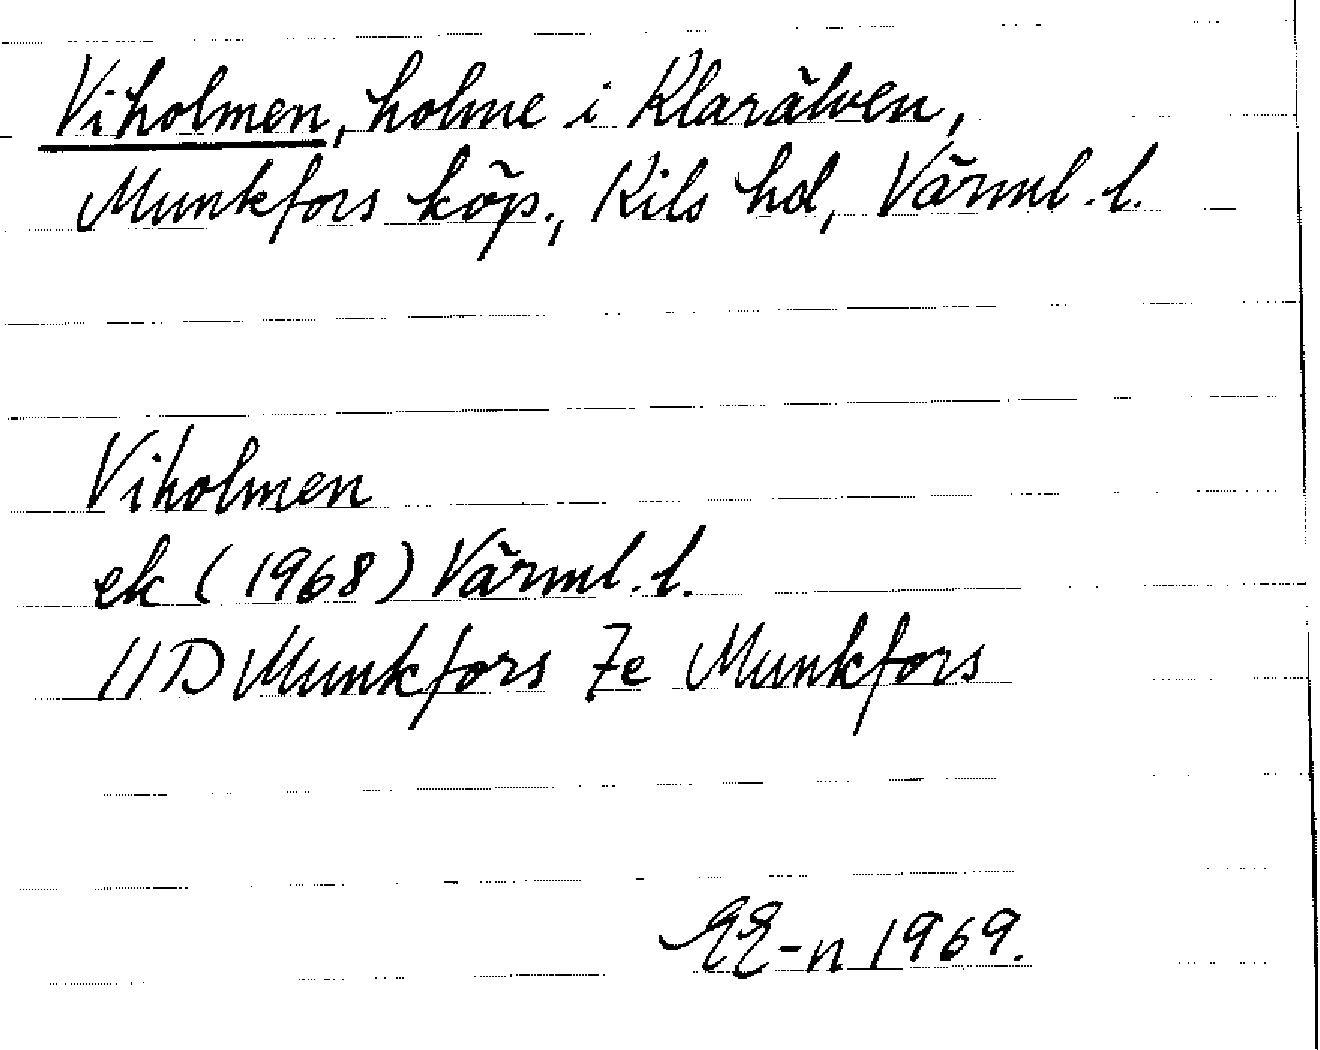 Viholmen, holme i Klarälven,
Munkfors köp., Kils hd, Värml. l.
Viholmen
ek (1968) Värml. l.
11D Munkfors 7e Munkfors
EE-n 1969.